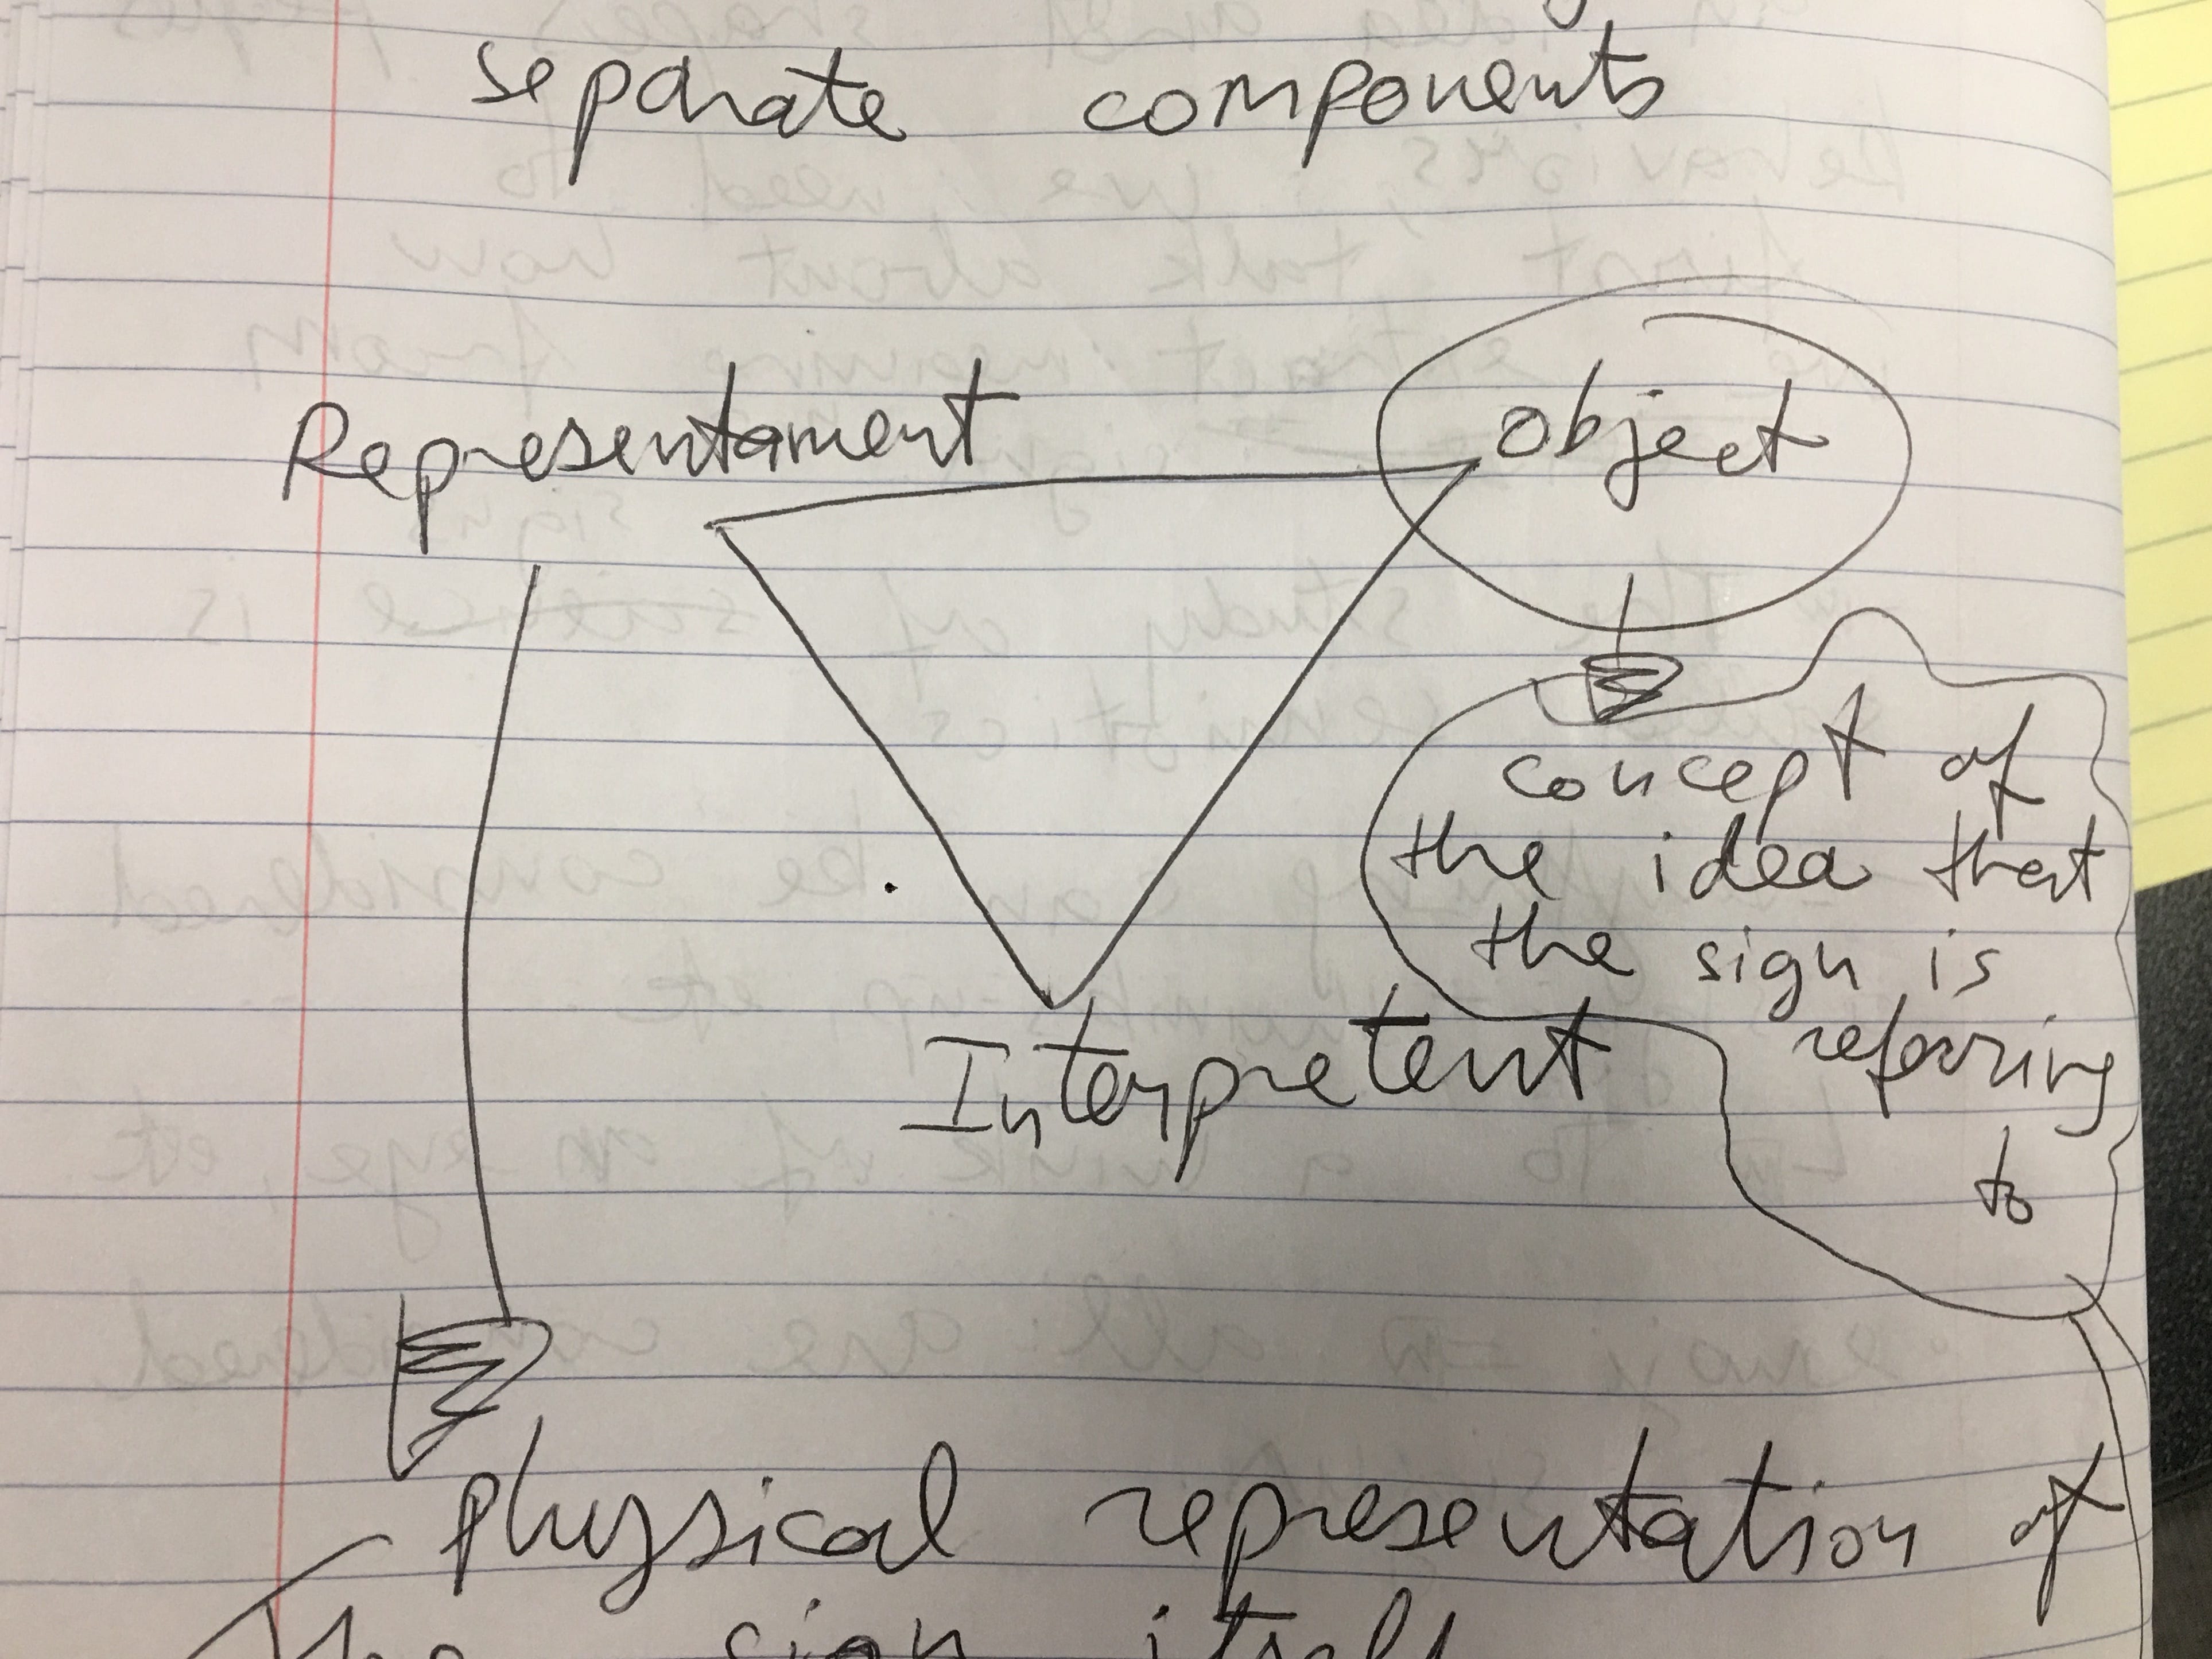 separate components
Representament
object
concept of
the idea that
the sign is
referring
to
Interpretent
physical representation of
The sign itself